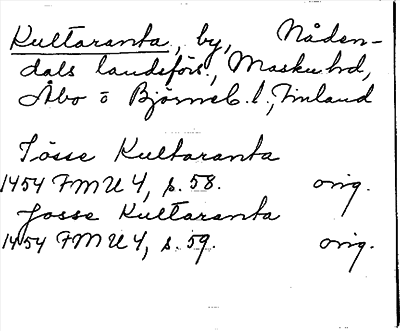 Kultaranta, by, Nåden-
dals landsförs., Masku hd,
Åbo o Björneb. l., Finland
Jösse Kultaranta
1454 FMU 4, s. 58. orig.
Josse Kultaranta
1454 FMU 4, s. 59. orig.